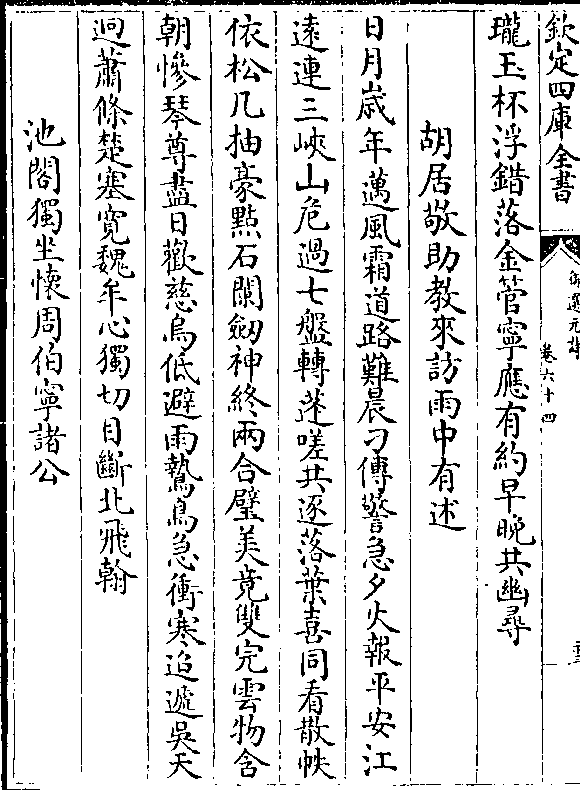 欽定四庫全書
御選元詩
卷六十四
瓏玉杯浮錯落金管寧應有約早晚共幽尋
胡居敬助教來訪雨中有述
日月歲年邁風霜道路難晨刁傳警急夕火報平安江
遠連三峽山危過七盤轉蓬嗟共逐落葉喜同看散帙
依松几抽豪點石闌劒神終兩合璧美竟雙完雲物含
朝慘琴尊盡日歡慈烏低避雨鷙鳥急衝寒迢遞吳天
迥蕭條楚塞寛魏牟心獨切目斷北飛翰
池閣獨坐懷周伯寧諸公